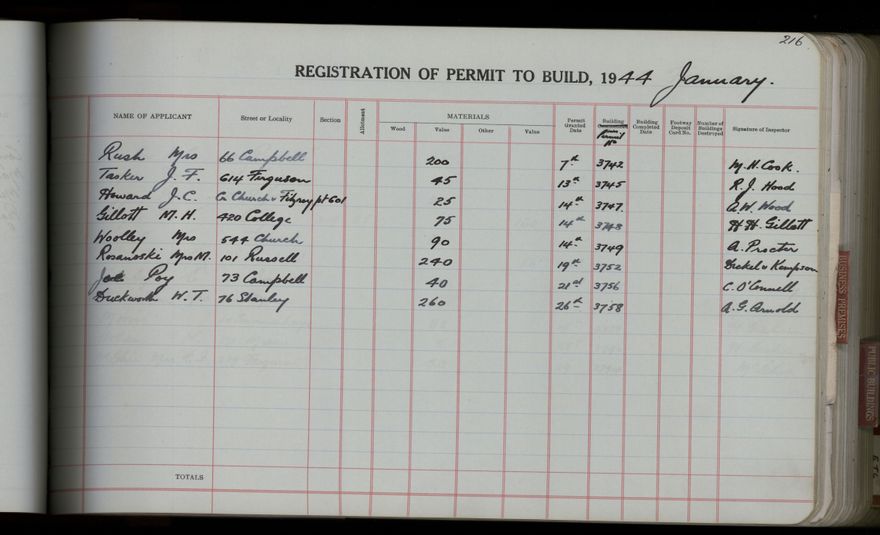 216
REGISTRATION OF PERMIT TO BUILD, 1944 January.
NAME OF APPLICANT Street or Locality Section Allotment MATERIALS Permit Granted Date Building Permit No Building Completed Date Footway Deposit Card No. Number of Buildings Destroyed Signature of Inspector
Wood Value Other Value
Rush Mrs 66 Campbell 200 7th 3742 M. H. Cook.
Tasker J. F. 614 Ferguson 45 13th 3745 R. J. Hood
Howard J. C. Cn Church & Fitzroy pt 601 25 14th 3747. A. W. Wood
Gillott M. H. 420 College 75 14th 3748 H. H. Gillott
Woolley Mrs 544 Church 90 14th 3749 A. Procter
Rosanoski Mrs M. 101 Russell 240 19th 3752 & Kempson
Joe Poy 73 Campbell 40 21st 3756 C. O'Connell
Duckworth W. T. 76 Stanley 260 26th 3758 A. G. Arnold
TOTALS
BUSINESS PREMISES
PUBLIC BUILDINGS